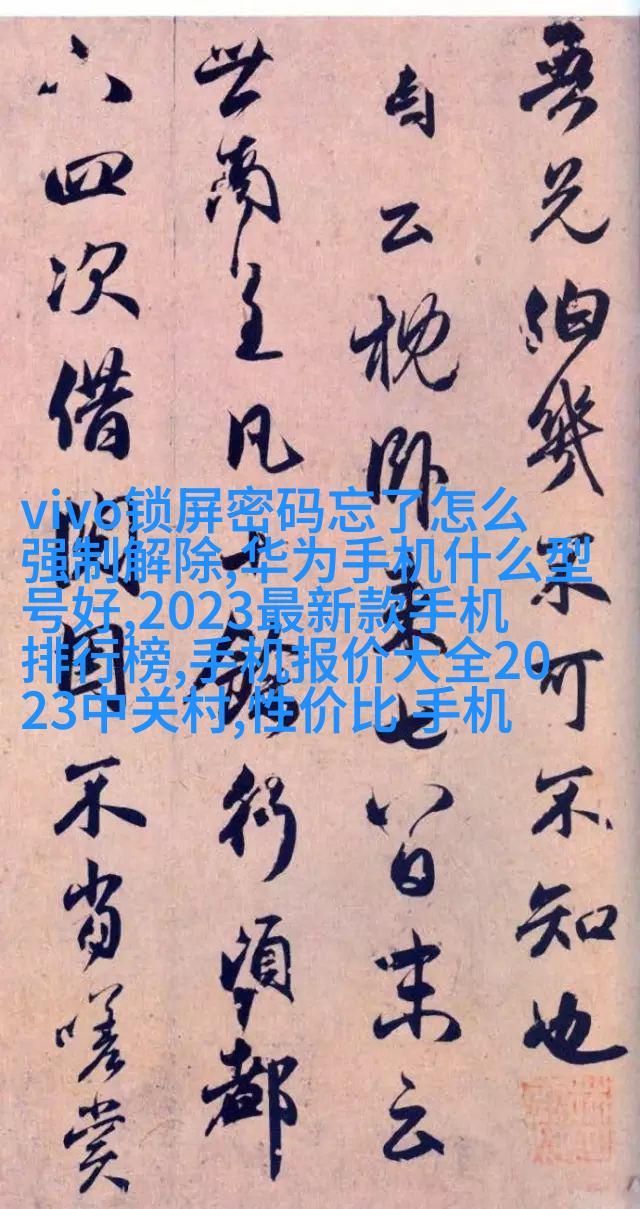 兄伯幾不可不知也
自枕卧来七八日云
世南主凡行頃都
四次借因不嗟赏
vivo锁屏密码忘了怎么
强制解除,华为手机什么型
号好,2023最新款手机
排行榜,手机报价大全20
23中关村,性价比 手机